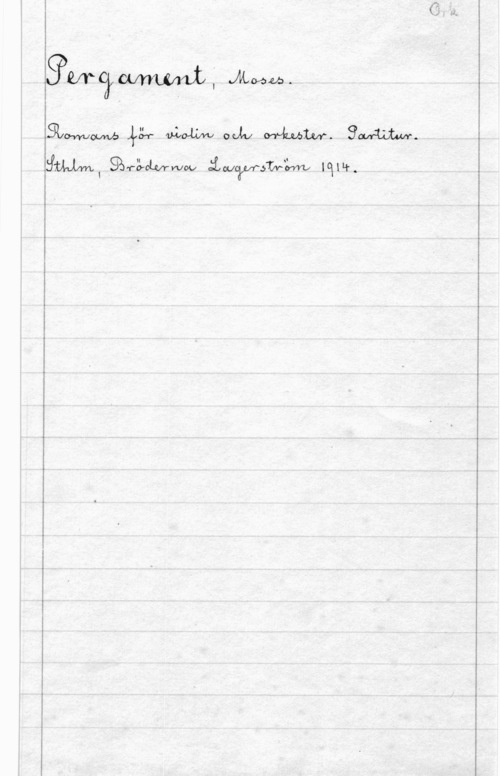 Ork
Pergament, Moses.
Romans för violin och orkester. Partitur.
Sthlm, Bröderna Lagerström 1914.